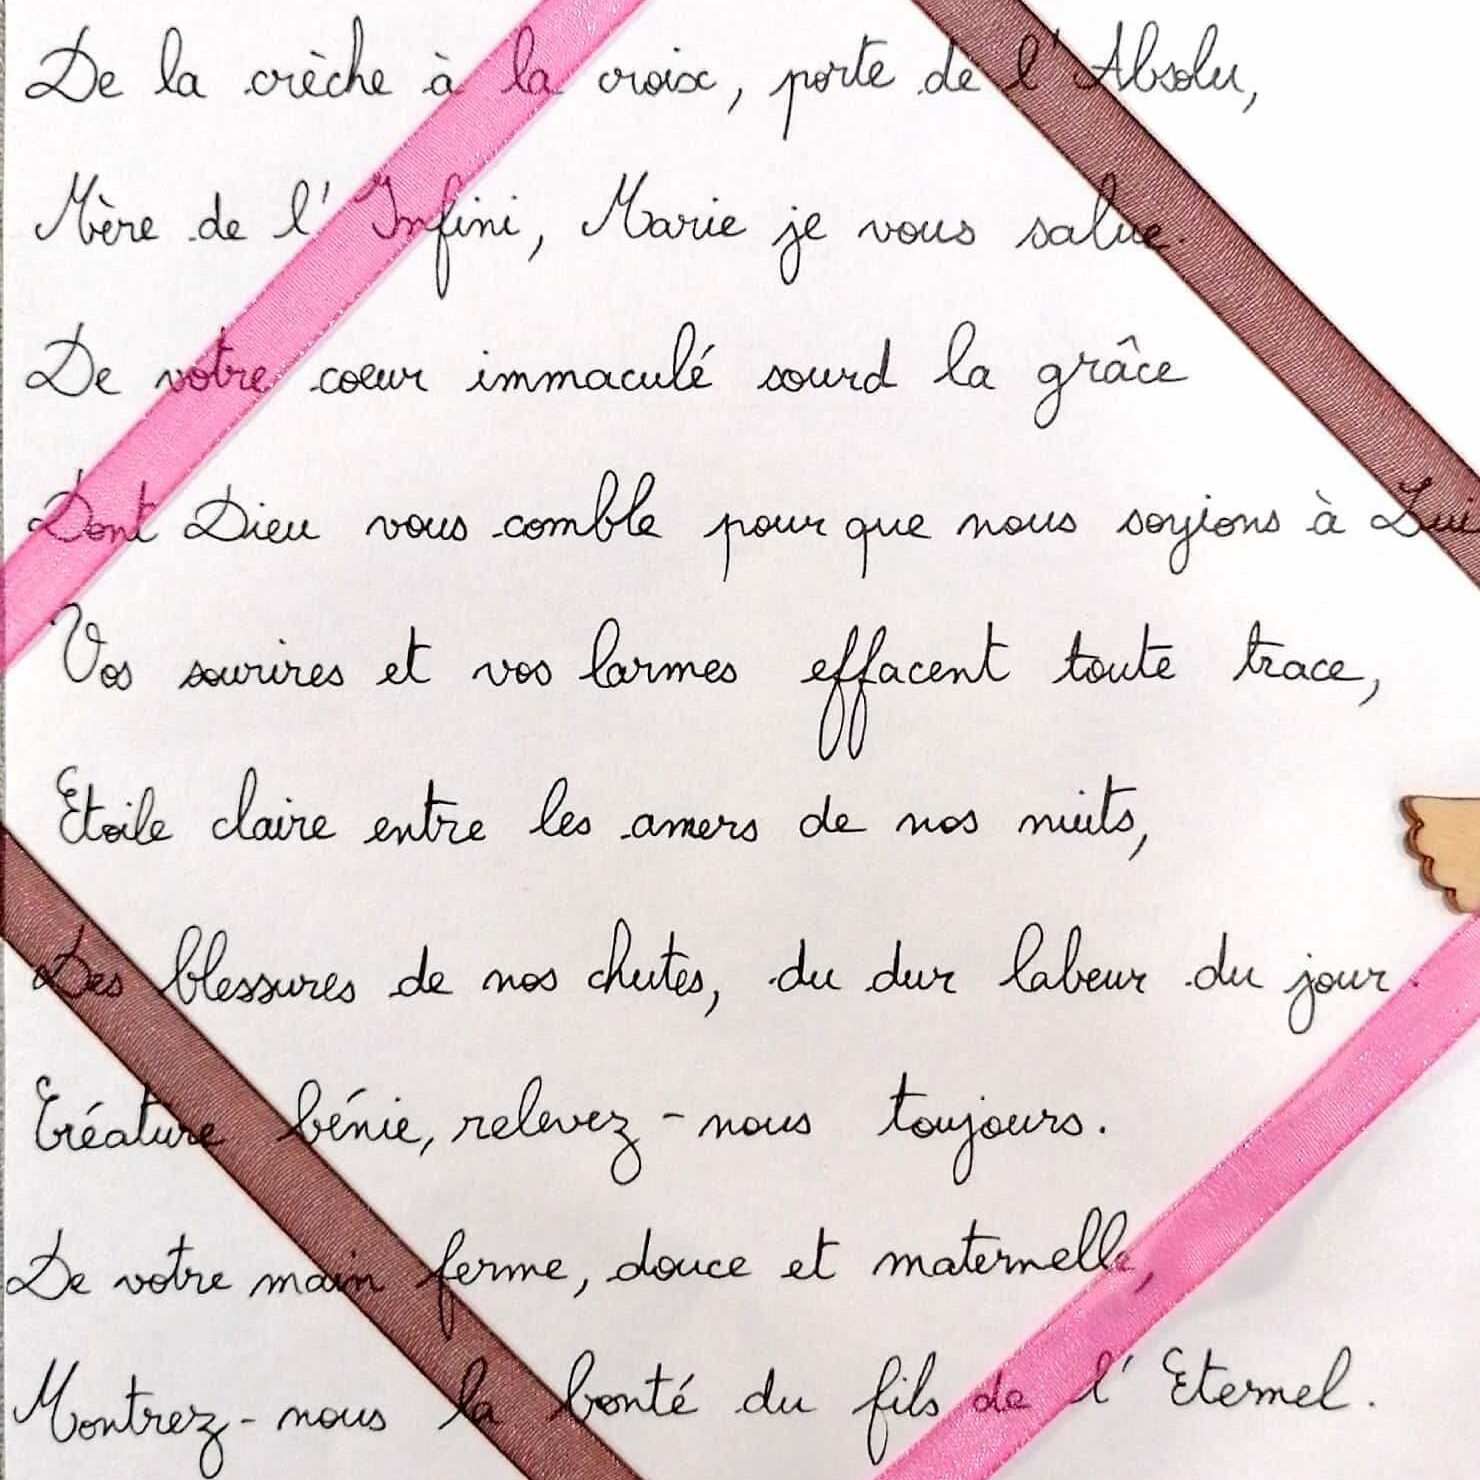 De la crèche à la croix, porte de l'Absolu,
Mère de l'Infini, Marie je vous salue.
De votre coeur immaculé sourd la grâce
Dont Dieu vous comble pour que nous soyions à Lui
Vos sourires et vos larmes effacent toute trace,
Etoile claire entre les amers de nos nuits,
Des blessures de nos chutes, du dur labeur du jour.
Créature bénie, relevez-nous toujours.
De votre main ferme, douce et maternelle,
Montrez-nous la bonté du fils de l'Eternel.